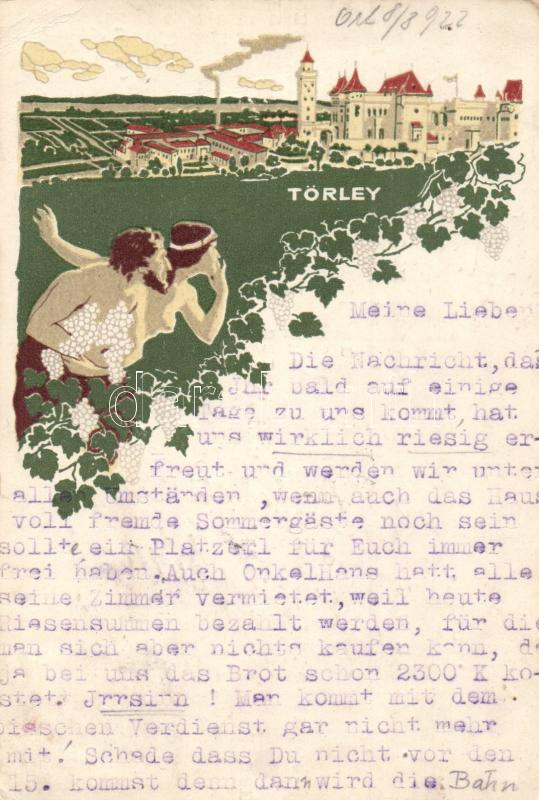 8/8 922
TÖRLEY
Meine Lieben
Die Nachricht, das
Jhr bald auf einige
Tage zu uns kommt, hat
uns wirklich riesig er-
freut und werden wir unter
allen Umständen ,wenn auch das Haus
voll fremde Sommergäste noch sein
sollte ein Platzerl für Euch immer
frei haben.Auch OnkelHans hatt alle
seine Zimmer vermietet,weil heute
Riesensummen bezahlt werden, für die
man sich aber nichts kaufen kann, d
ja bei uns das Brot schon 2300 K ko-
stet. Jrrsinn ! Man kommt mit dem
bisschen Verdienst gar nicht mehr
mit! Schade dass Du nicht vor den
15. kommst denn dann wird die Bahn